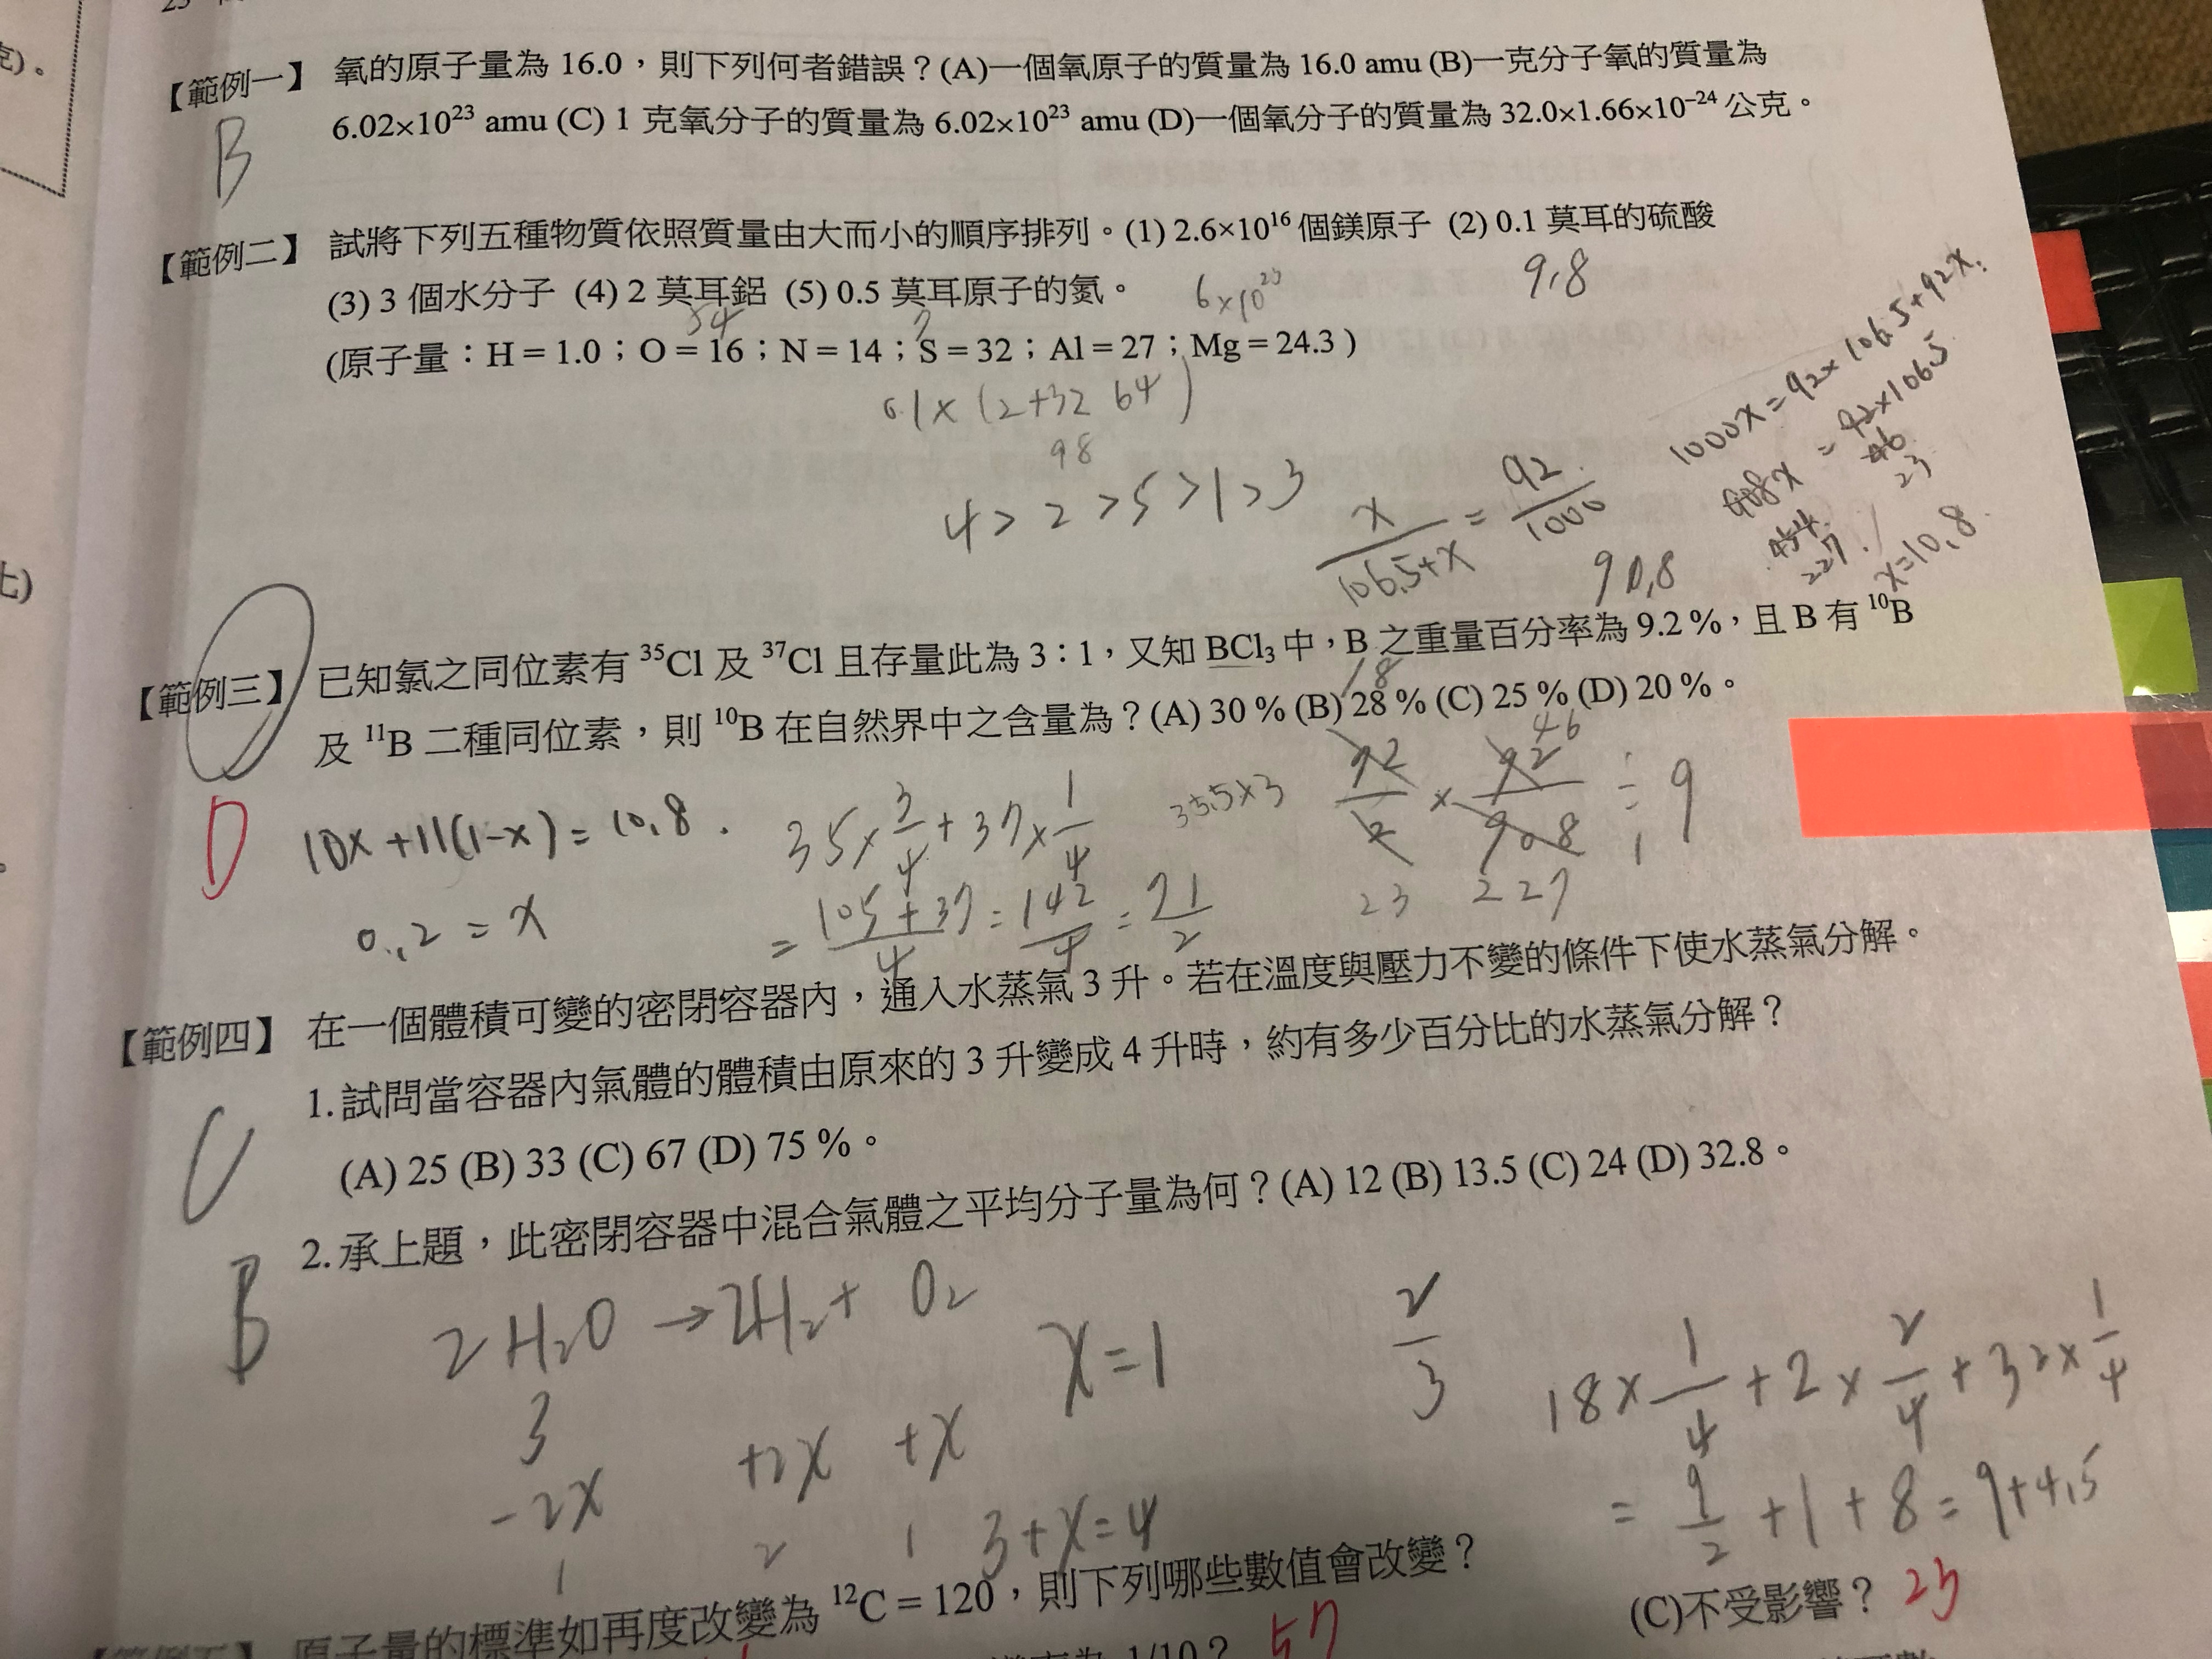 克)。
【範例一】 氧的原子量為 16.0，則下列何者錯誤？(A)一個氧原子的質量為 16.0 amu (B)一克分子氧的質量為
6.02×10²³ amu (C) 1 克氧分子的質量為 6.02×10²³ amu (D)一個氧分子的質量為 32.0×1.66×10⁻²⁴ 公克。
B
【範例二】 試將下列五種物質依照質量由大而小的順序排列。(1) 2.6×10¹⁶ 個鎂原子 (2) 0.1 莫耳的硫酸
9.8
(3) 3 個水分子 (4) 2 莫耳鋁 (5) 0.5 莫耳原子的氮。
6×10²³
54
7
(原子量：H = 1.0；O = 16；N = 14；S = 32；Al = 27；Mg = 24.3 )
0.1 x (2+32 64)
98
4 > 2 > 5 > 1 > 3
x/(106.5+x) = 92/1000
1000x = 92×106.5+92x
908x = 92×106.5
46
23
454
227
x=10.8
90.8
【範例三】 已知氯之同位素有 ³⁵Cl 及 ³⁷Cl 且存量此為 3：1，又知 BCl₃ 中，B 之重量百分率為 9.2 %，且 B 有 ¹⁰B
18
及 ¹¹B 二種同位素，則 ¹⁰B 在自然界中之含量為？(A) 30 % (B) 28 % (C) 25 % (D) 20 %。
D
10x +11(1-x) = 10.8
0.2 = x
35×3/4 + 37×1/4
= (105+37)/4 = 142/4 = 71/2
35.5×3
46
23 227
【範例四】 在一個體積可變的密閉容器內，通入水蒸氣 3 升。若在溫度與壓力不變的條件下使水蒸氣分解。
1.試問當容器內氣體的體積由原來的 3 升變成 4 升時，約有多少百分比的水蒸氣分解？
C
(A) 25 (B) 33 (C) 67 (D) 75 %。
2.承上題，此密閉容器中混合氣體之平均分子量為何？(A) 12 (B) 13.5 (C) 24 (D) 32.8。
B
2H₂O → 2H₂ + O₂
x=1
2/3
3
-2x +2x +x
1 2 1
3+x=4
18×1/4 + 2×2/4 + 32×1/4
= 9/2 + 1 + 8 = 9+4.5
原子量的標準如再度改變為 ¹²C = 120，則下列哪些數值會改變？
1/10？ 57
(C)不受影響？ 23